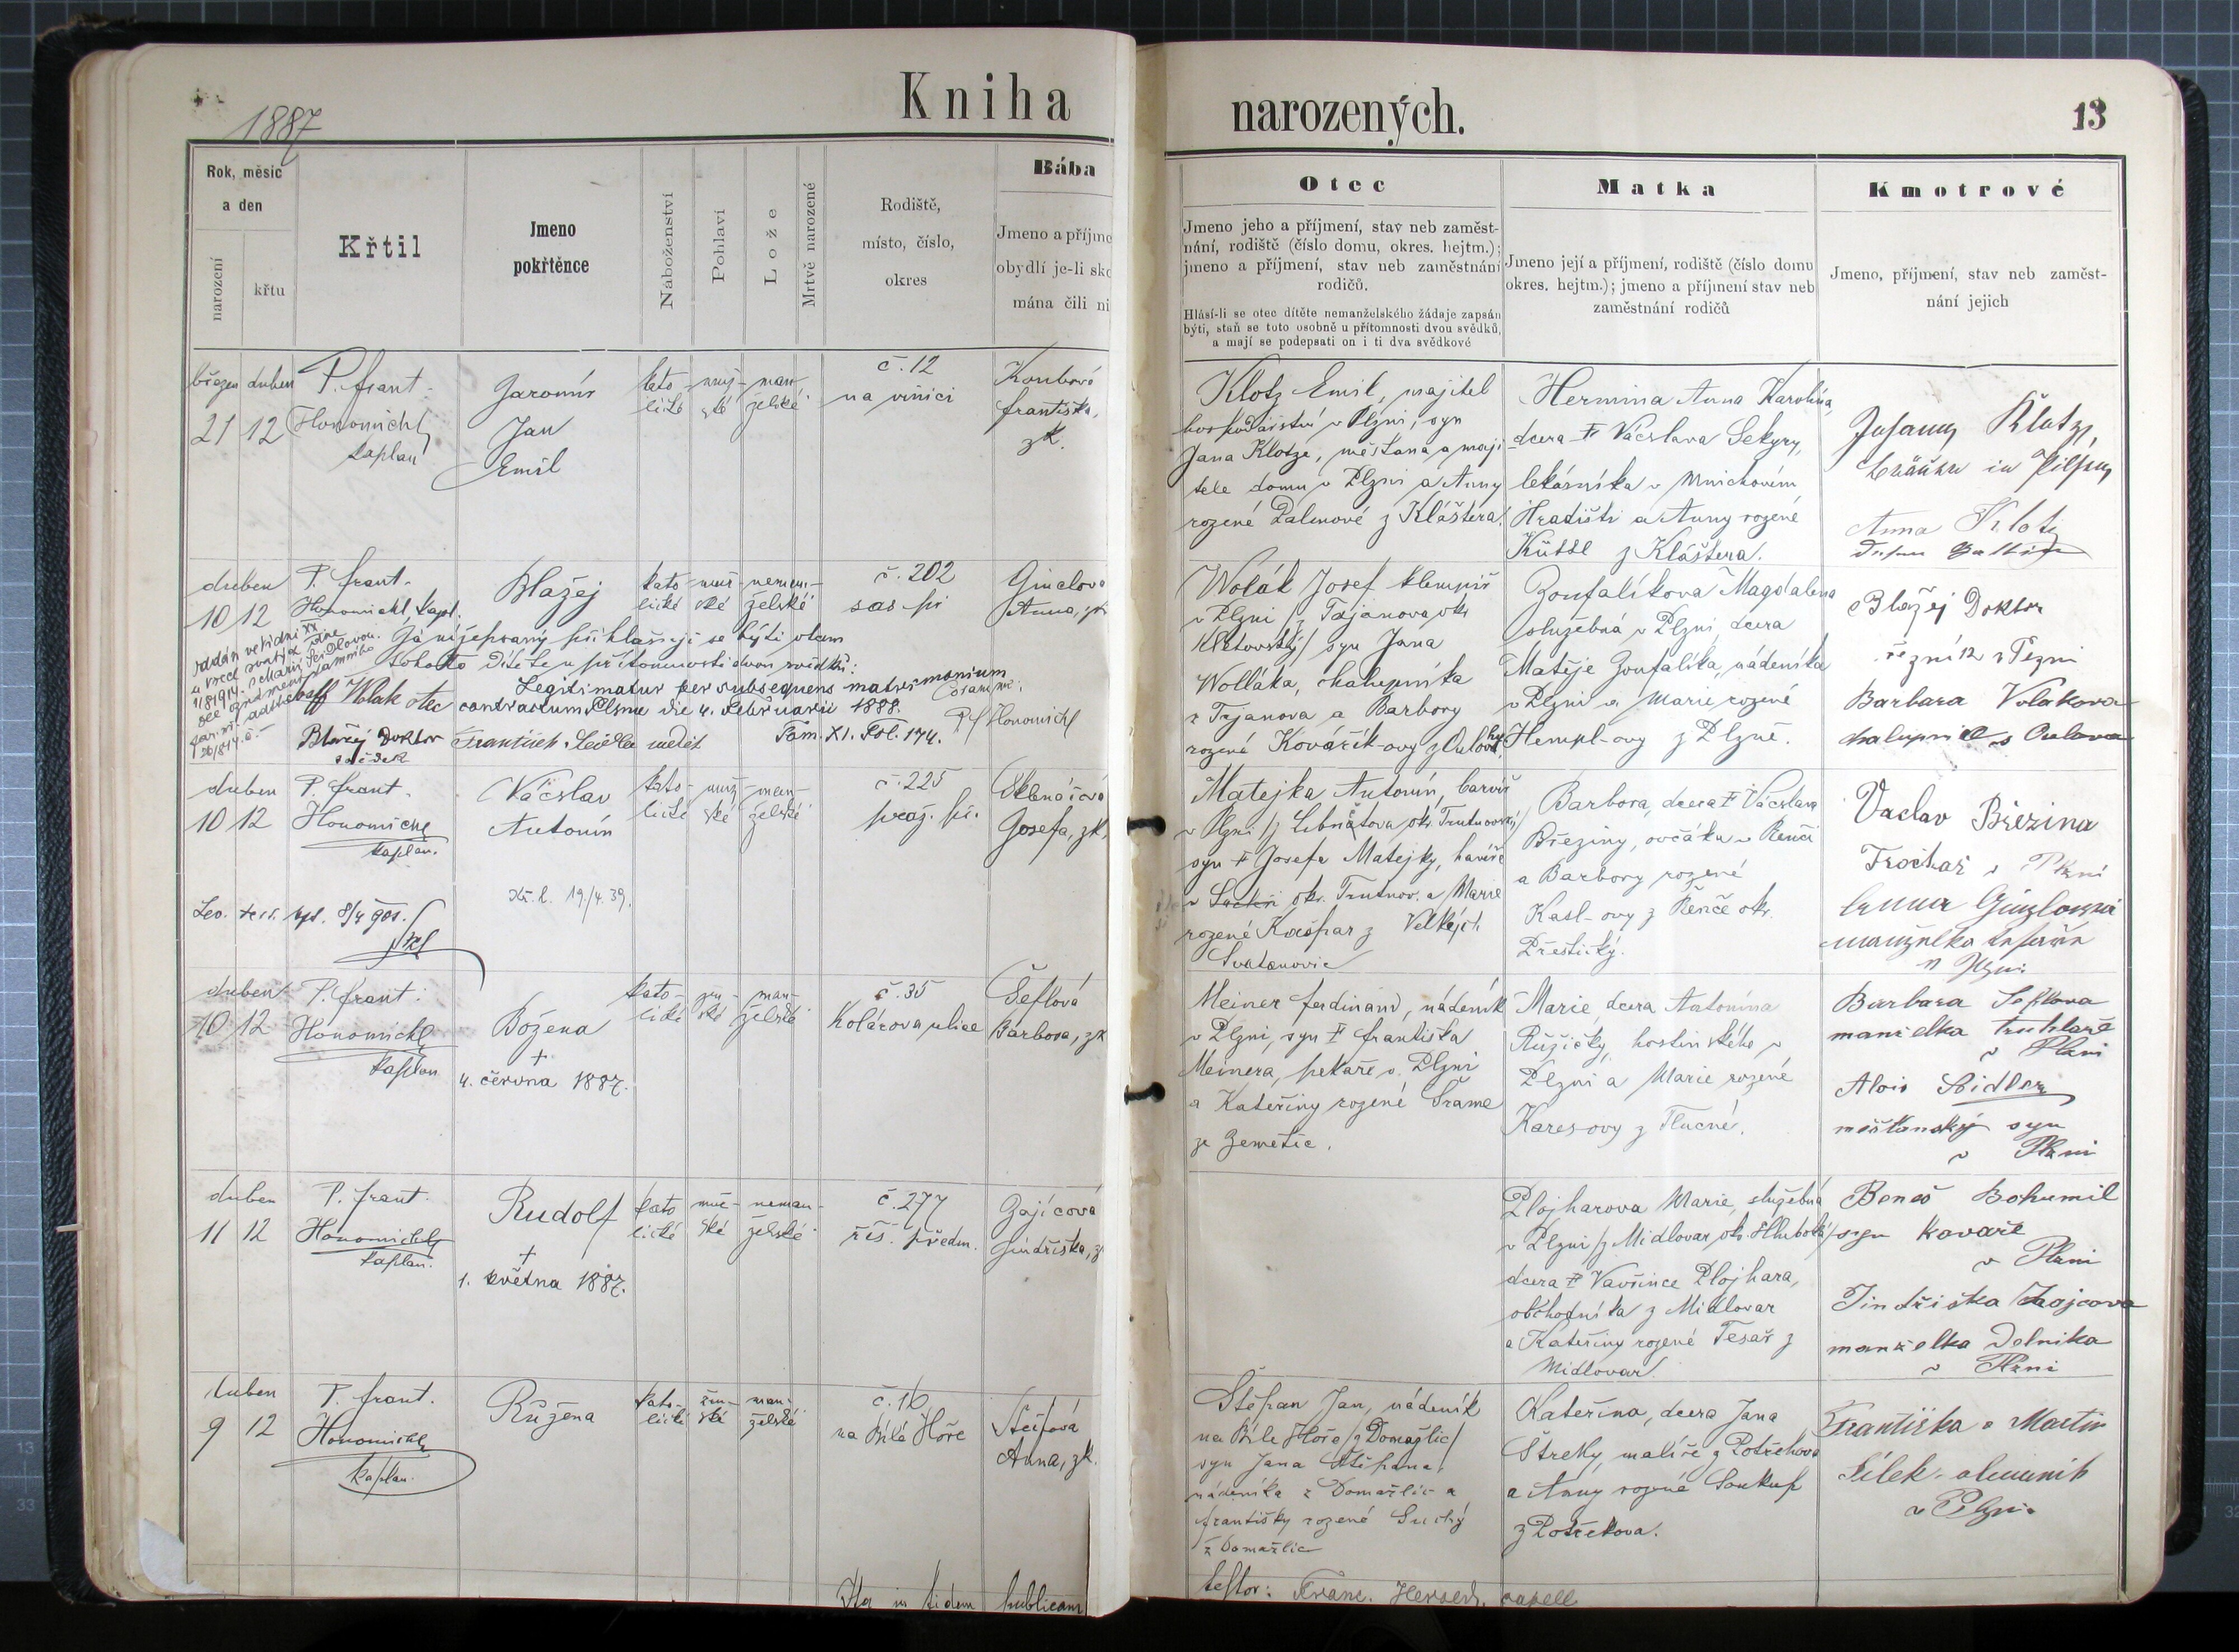 Kniha narozených.
13
1887
Rok, měsíc a den
narození
křtu
Křtil
Jmeno pokřtěnce
Náboženství
Pohlaví
Lože
Mrtvě narozené
Rodiště, místo, číslo, okres
Bába
Jmeno a příjme
obydlí je-li sko
mána čili ni
Otec
Jmeno jeho a příjmení, stav neb zaměst-
nání, rodiště (číslo domu, okres. hejtm.);
jmeno a příjmení, stav neb zaměstnání
rodičů.
Hlásí-li se otec dítěte nemanželského žádaje zapsán
býti, staň se toto osobně u přítomnosti dvou svědků,
a mají se podepsati on i ti dva svědkové
Matka
Jmeno její a příjmení, rodiště (číslo domu
okres. hejtm.); jmeno a příjmení stav neb
zaměstnání rodičů
Kmotrové
Jmeno, příjmení, stav neb zaměst-
nání jejich
březen duben
21 12
P. Frant.
Honomichl
kaplan
Jaromír
Jan
Emil
kato-
lické
muž-
ské
man-
želské
č. 12
na vinici
Koubová
Františka,
zk.
Klotz Emil, majitel
hospodářství v Plzni, syn
Jana Klotze, měšťana a maji
tele domu v Plzni a Anny
rozené z Kláštera.
Hermina Anna Karolina,
dcera Václava Sekyry,
lekárníka v Mnichovém
Hradišti a Anny rozené
z Kláštera.
Klotz,
in Pilsen
Anna Klotz
duben
10 12
P. Frant.
Honomichl, kapl.
Blažej
kato-
lické
muž-
ské
neman-
želské
č. 202
sas. př
Anna, zk.
Já nížepsaný přihlašuji se býti otcem
tohoto dítěte u přítomnosti dvou svědků:
Legitimatur per subsequens matrimonium
contractum Plsnae die 4. Februarii 1888.
Tom. XI. Fol. 174.
Wolak otec
Blažej Doktor
svědek
František
P. F. Honomichl
Wolák Josef klempíř
v Plzni /z Trjanova okr.
Klatovský/ syn Jana
Wolláka, chalupníka
z Trjanova a Barbory
rozené Kovářík-ovy z
Gonfalíkova Magdalena
služebná v Plzni, dcera
Matěje Gonfalíka, nádeníka
v Plzni a Marie rozené
Hempl-ovy z Plzně.
Blažej Doktor
řezník v Plzni
Barbara Volakova
duben
10 12
P. Frant.
Honomichl
kaplan.
Václav
Antonín
kato-
lické
muž-
ské
man-
želské
č. 225
praž. př.
Sklenářová
Josefa, zk.
19./4. 39.
8/4 901.
Matejka Antonín, barvíř
v Plzni /z Libňatova okr. Trutnovský/
syn Josefa Matejky, havíře
v okr. Trutnov. a Marie
rozené Kašpar z Velkých
Svatoňovic
Barbora, dcera Václava
Březiny, ovčáka v Řenči
a Barbory rozené
Kasl-ovy z Řenče okr.
Přeštický.
Vaclav Březina
v Plzni
manželka
v Plzni
duben
10 12
P. Frant.
Honomichl
kaplan
Božena
†
4. června 1887.
kato-
lické
žen-
ské
man-
želské
č. 35
Kolárova ulice
Šeflová
Barbora, zk
Meiner Ferdinand, nádeník
v Plzni, syn Františka
Meinera, pekaře v Plzni
a Kateřiny rozené Šrame
ze Zemětic.
Marie, dcera Antonína
Růžičky, hostinského v
Plzni a Marie rozené
Kares-ovy z Tlučné.
Barbara Seflova
manželka truhlaře
v Plzni
Alois Seidler
měštanský syn
v Plzni
duben
11 12
P. Frant.
Honomichl
kaplan.
Rudolf
†
1. května 1887.
kato-
lické
muž-
ské
neman-
želské
č. 277
říš. předm.
Zajícová
Jindřiška, z
Plojharova Marie, služebná
v Plzni /z Midlovar, okr. Hluboká/
dcera Vavřince Plojhara,
obchodníka z Midlovar
a Kateřiny rozené Tesař z
Midlovar.
Beneš Bohumil
syn kovaře
v Plzni
Jindřiška Zajcova
manželka Dělnika
v Plzni
duben
9 12
P. Frant.
Honomichl
kaplan.
Růžena
kato-
lické
žen-
ské
man-
želské
č. 16
na Bílé Hoře
Anna, zk.
Štěpan Jan, nádeník
na Bílé Hoře /z Domažlic/
syn Jana Štěpana,
nádeníka z Domažlic a
Františky rozené Suchý
z Domažlic
Kateřina, dcera Jana
malíře z
a Anny rozené Soukup
z
Františka a Martin
v Plzni
Ita in fidem publicam
testor: Franc. capell